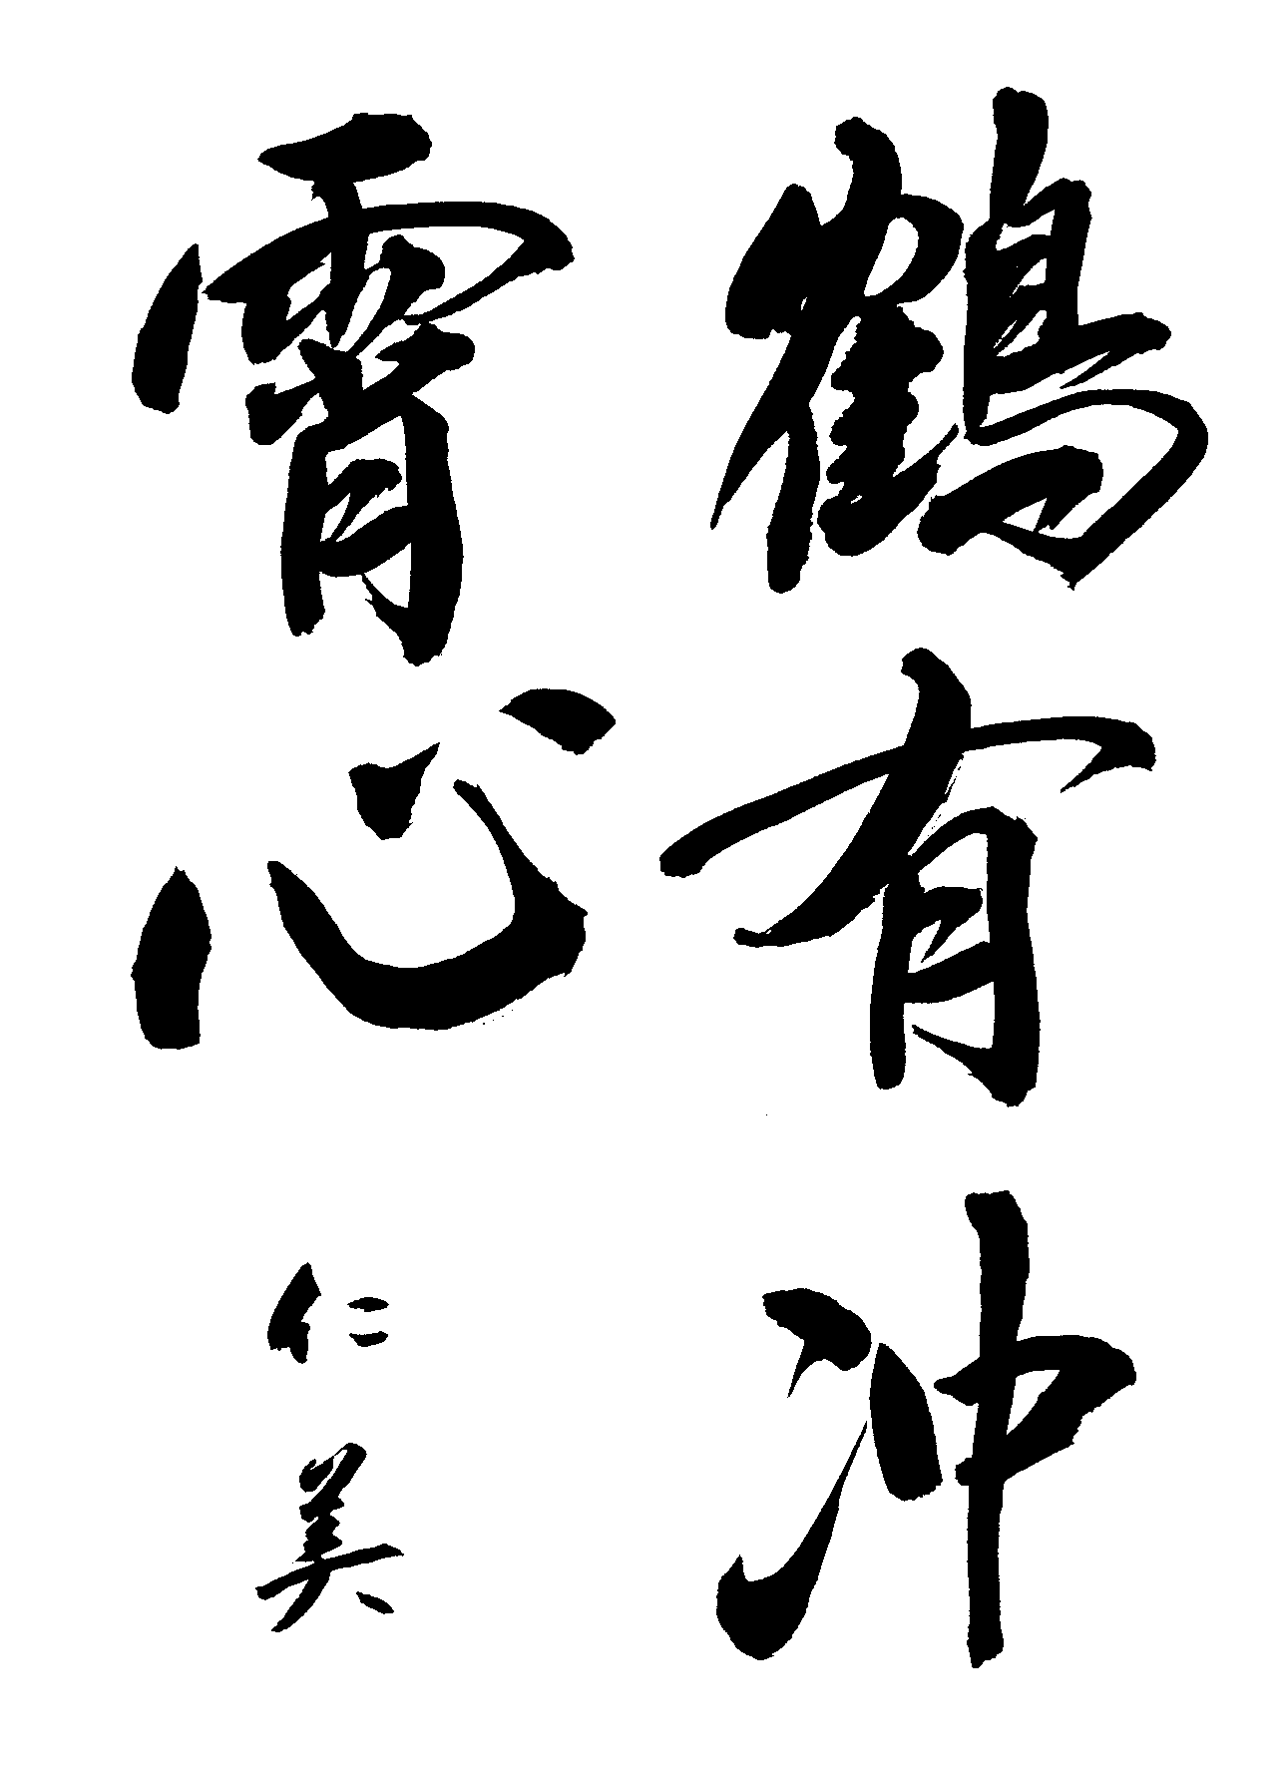 鶴有冲
霄心
仁美